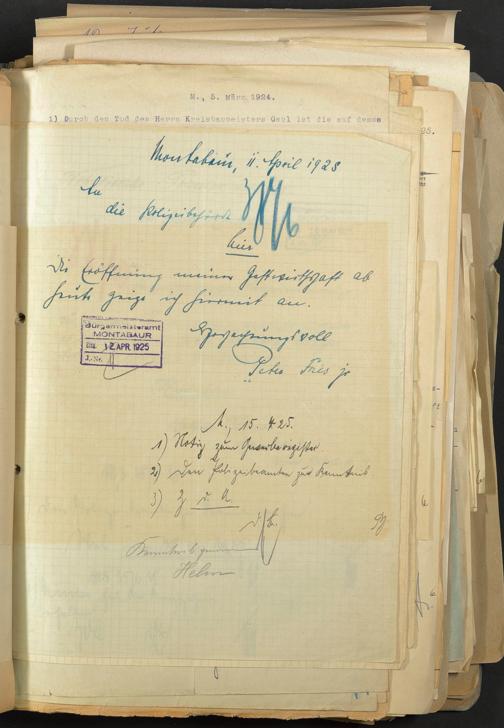 M., 5. März 1924.
1) Durch den Tod des Herrn Kreisbaumeisters Gaul ist die auf dessen
Montabaur, 11. April 1925
An
die Polizeibehörde
hier
Die Eröffnung meiner Gastwirtschaft ab
heute zeige ich hiermit an.
Hochachtungsvoll
Peter Fries jr
Bürgermeisteramt
MONTABAUR
Eing. 12. APR. 1925
J.-Nr.
M., 15. 4. 25.
1) Notiz zum Gewerberegister
2) Dem Polizeibeamten zur Kenntnis
3) Z. d. A.
D. B.
Kenntnis genommen